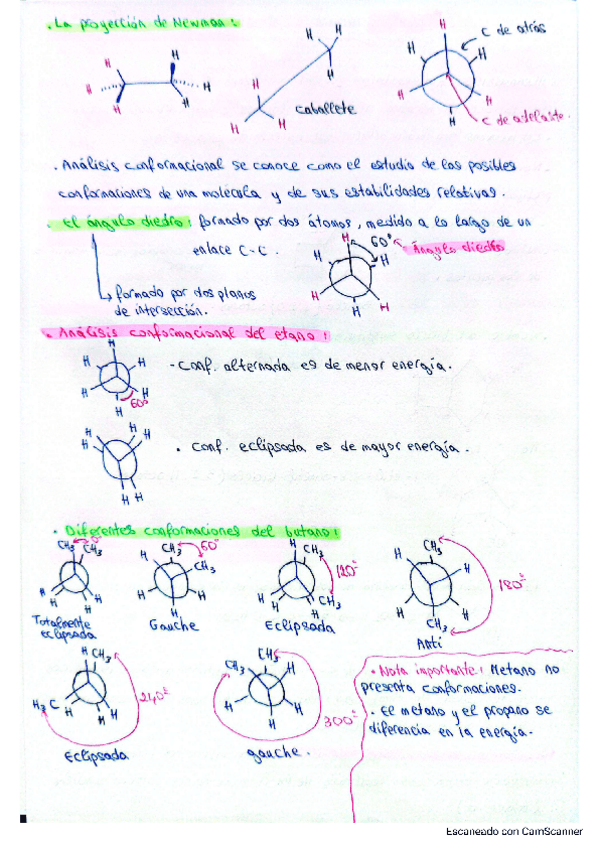 . La proyección de Newman :
H
H
H
H
H
H
H
H
H
H
H
H
H
C de atrás
H
H
H
H
H
C de adelante.
caballete
. Análisis conformacional se conoce como el estudio de las posibles
conformaciones de una molécula y de sus estabilidades relativas.
. El ángulo diedro : formado por dos átomos, medido a lo largo de un
enlace C-C.
H
60°
Ángulo diedro
H
H
H
H
H
formado por dos planos
de intersección.
. Análisis conformacional del etano :
H
H
H
H
H
H
60°
- Conf. alternada es de menor energía.
H
H
H
H
H
H
. Conf. eclipsada es de mayor energía.
. Diferentes conformaciones del butano :
CH3 0° CH3
H
H
H
H
Totalmente
eclipsada
H
CH3
60°
CH3
H
H
H
Gauche
H
CH3
120°
H
H
H
CH3
Eclipsada
CH3
H
H
180°
H
H
CH3
Anti
H CH3
H3C
H
H
H
240°
Eclipsada
CH3
CH3
H
H
H
H
300°
gauche.
. Nota importante : Metano no
presenta conformaciones.
. El metano y el propano se
diferencia en la energía.
Escaneado con CamScanner